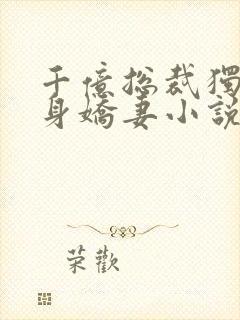 千億総裁獨
身嬌妻小說
荣歡